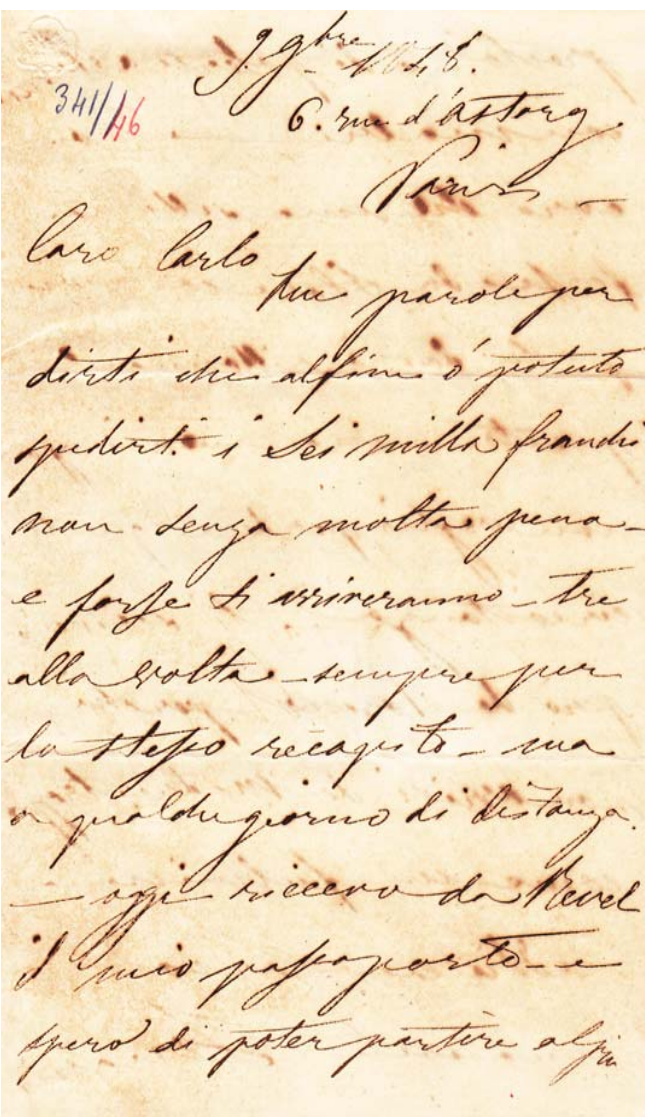 9 gbre 1848.
341/46
6. rue d'Astorg
Paris -
Caro Carlo
due parole per
dirti che alfine ó potuto
spedirti i sei milla franchi
non senza molta pena -
e forse ti arriveranno - tre
alla volta - sempre per
lo stesso recapito - ma
a qualche giorno di distanza.
- oggi ricevo da Revel
il mio passaporto - e
spero di poter partire al piu